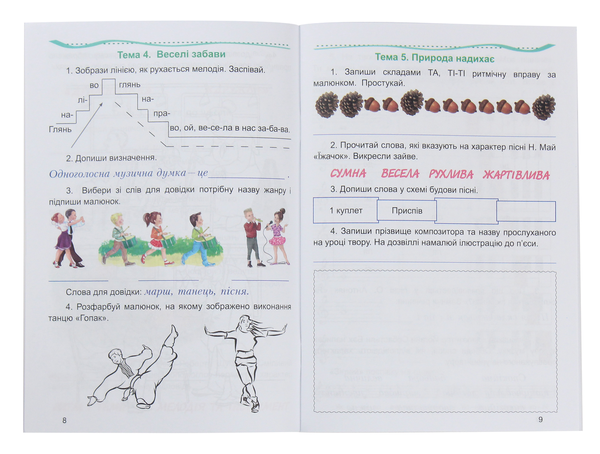 Тема 4. Веселі забави
1. Зобрази лінією, як рухається мелодія. Заспівай.
во глянь
лі- на-
на- пра-
Глянь во, ой, ве-се-ла в нас за-ба-ва.
2. Допиши визначення.
Одноголосна музична думка – це
3. Вибери зі слів для довідки потрібну назву жанру і
підпиши малюнок.
Слова для довідки: марш, танець, пісня.
4. Розфарбуй малюнок, на якому зображено виконання
танцю «Гопак».
8
Тема 5. Природа надихає
1. Запиши складами ТА, ТІ-ТІ ритмічну вправу за
малюнком. Простукай.
2. Прочитай слова, які вказують на характер пісні Н. Май
«Їжачок». Викресли зайве.
СУМНА ВЕСЕЛА РУХЛИВА ЖАРТІВЛИВА
3. Допиши слова у схемі будови пісні.
1 куплет Приспів
4. Запиши прізвище композитора та назву прослуханого
на уроці твору. На дозвіллі намалюй ілюстрацію до п’єси.
9